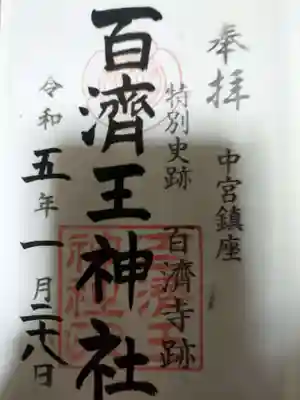 奉拝
中宮鎮座
特別史跡 百済寺跡
百濟王神社
令和五年一月二十八日